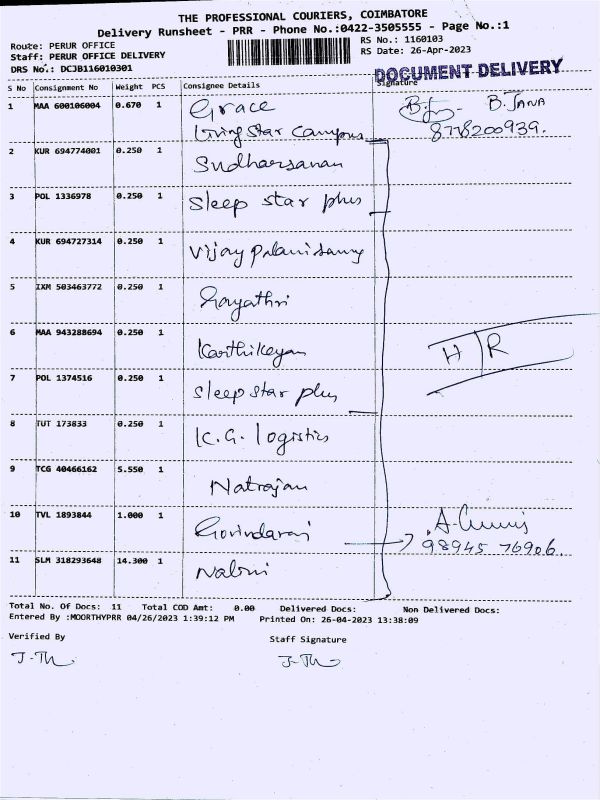 THE PROFESSIONAL COURIERS, COIMBATORE
Delivery Runsheet - PRR - Phone No.:0422-3505555 - Page No.:1
Route: PERUR OFFICE
RS No.: 1160103
Staff: PERUR OFFICE DELIVERY
RS Date: 26-Apr-2023
DRS No.: DCJB116010301
DOCUMENT DELIVERY
S No Consignment No Weight PCS Consignee Details Signature
1 MAA 600106004 0.670 1 Grace B. JANA
living Star Campus 8778200939.
2 KUR 694774001 0.250 1 Sudharsanan
3 POL 1336978 0.250 1 Sleep star plus
4 KUR 694727314 0.250 1 Vijay Palanisamy
5 IXM 503463772 0.250 1 Gayathri
6 MAA 943288694 0.250 1 Karthikeyan
H/R
7 POL 1374516 0.250 1 Sleep star plus
8 TUT 173833 0.250 1 K.G. logistics
9 TCG 40466162 5.550 1 Natrajan
10 TVL 1893844 1.000 1 Govindaraj
98945 76906.
11 SLM 318293648 14.300 1 Nalini
Total No. Of Docs: 11 Total COD Amt: 0.00 Delivered Docs: Non Delivered Docs:
Entered By :MOORTHYPRR 04/26/2023 1:39:12 PM Printed On: 26-04-2023 13:38:09
Verified By Staff Signature